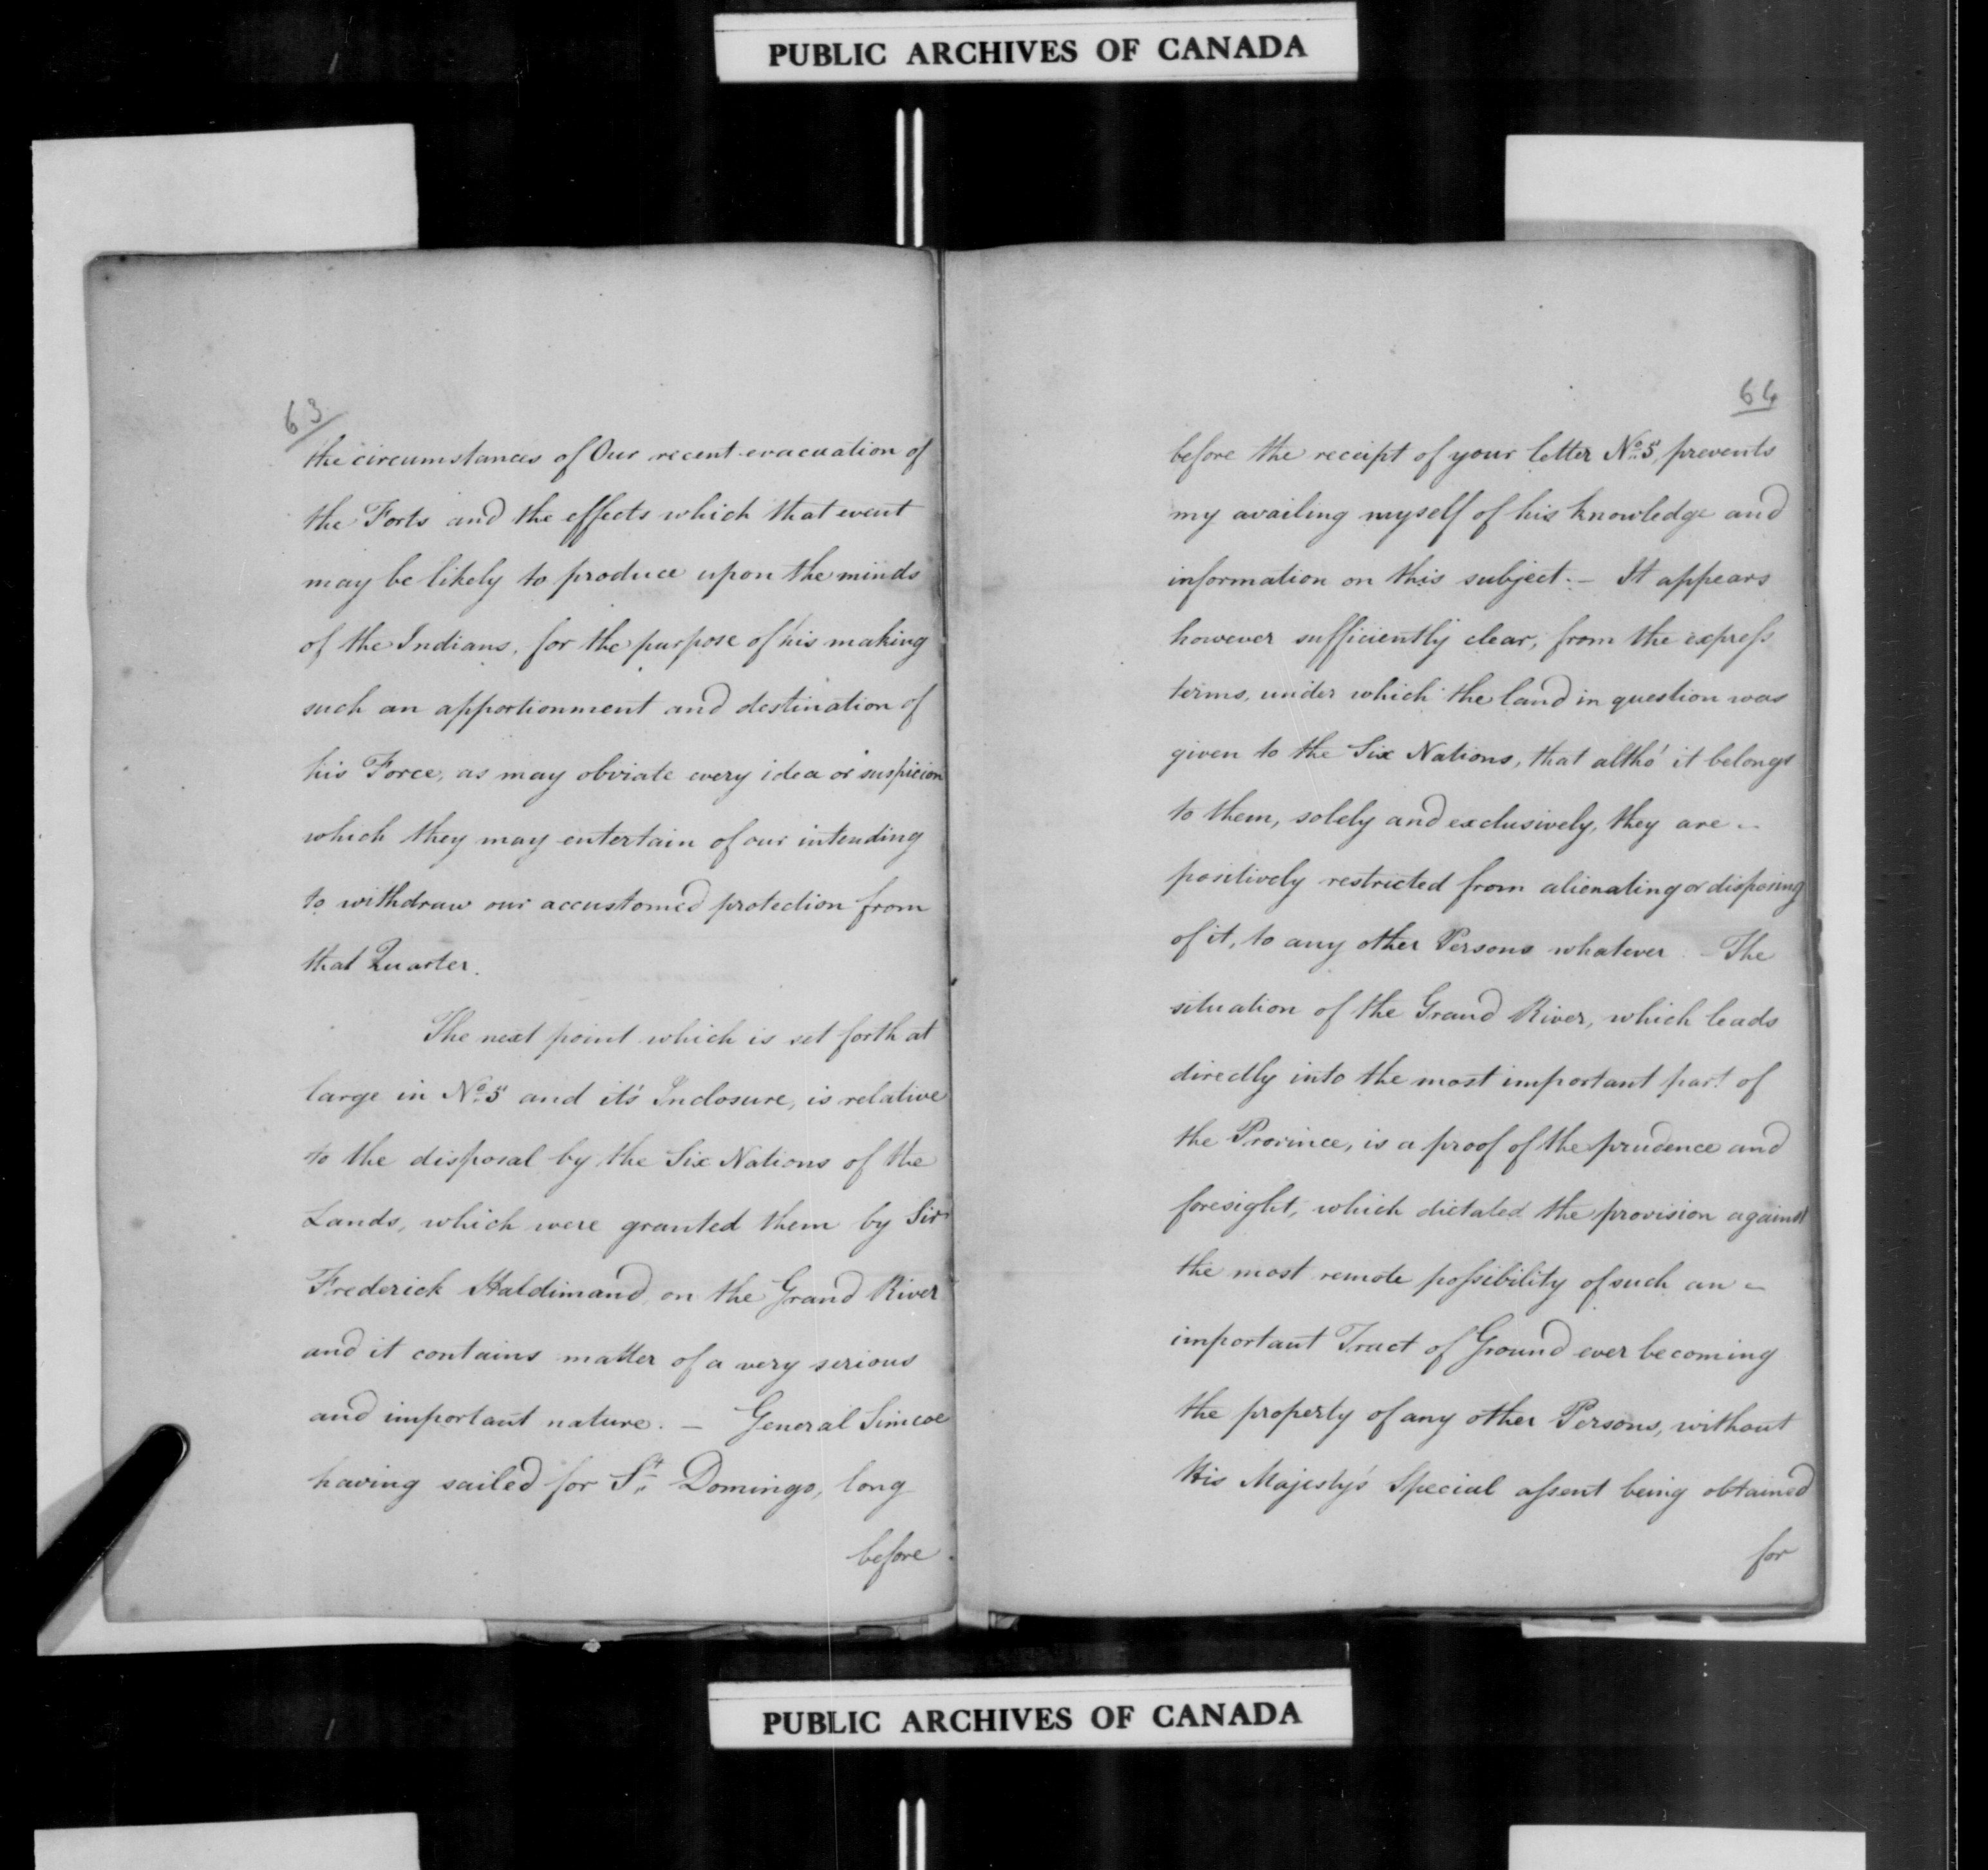 PUBLIC ARCHIVES OF CANADA
63
the circumstances of Our recent evacuation of
the Forts and the effects which that event
may be likely to produce upon the minds
of the Indians, for the purpose of his making
such an apportionment and destination of
his Force, as may obviate every idea or suspicion
which they may entertain of our intending
to withdraw our accustomed protection from
that Quarter.
The next point which is set forth at
large in No. 5 and it's Inclosure, is relative
to the disposal by the Six Nations of the
Lands, which were granted them by Sir
Frederick Haldimand on the Grand River
and it contains matter of a very serious
and important nature. — General Simcoe
having sailed for St. Domingo, long
before
64
before the receipt of your letter No. 5, prevents
my availing myself of his knowledge and
information on this subject. — It appears
however sufficiently clear, from the express
terms, under which the land in question was
given to the Six Nations, that altho' it belongs
to them, solely and exclusively, they are
positively restricted from alienating or disposing
of it, to any other Persons whatever. The
situation of the Grand River, which leads
directly into the most important part of
the Province, is a proof of the prudence and
foresight, which dictated the provision against
the most remote possibility of such an
important Tract of Ground ever becoming
the property of any other Persons, without
His Majesty's Special assent being obtained
for
PUBLIC ARCHIVES OF CANADA